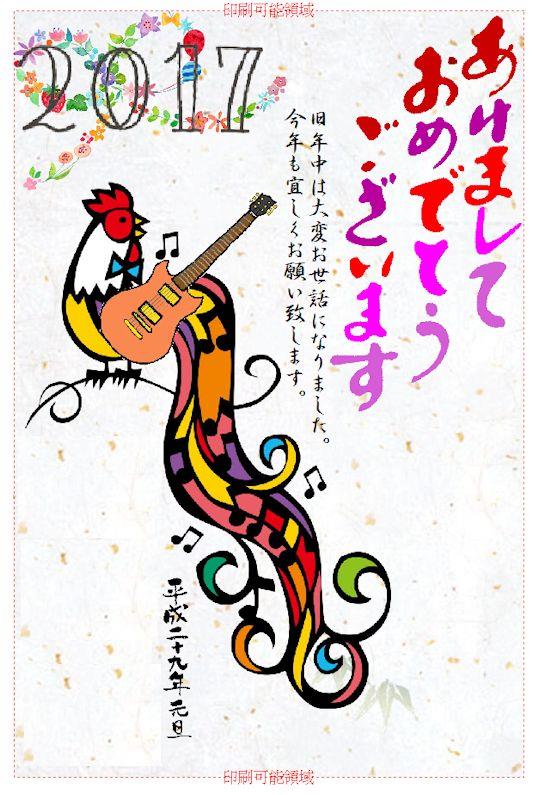 印刷可能領域
2017
あけまして
おめでとう
ございます
旧年中は大変お世話になりました。
今年も宜しくお願い致します。
平成二十九年 元旦
印刷可能領域